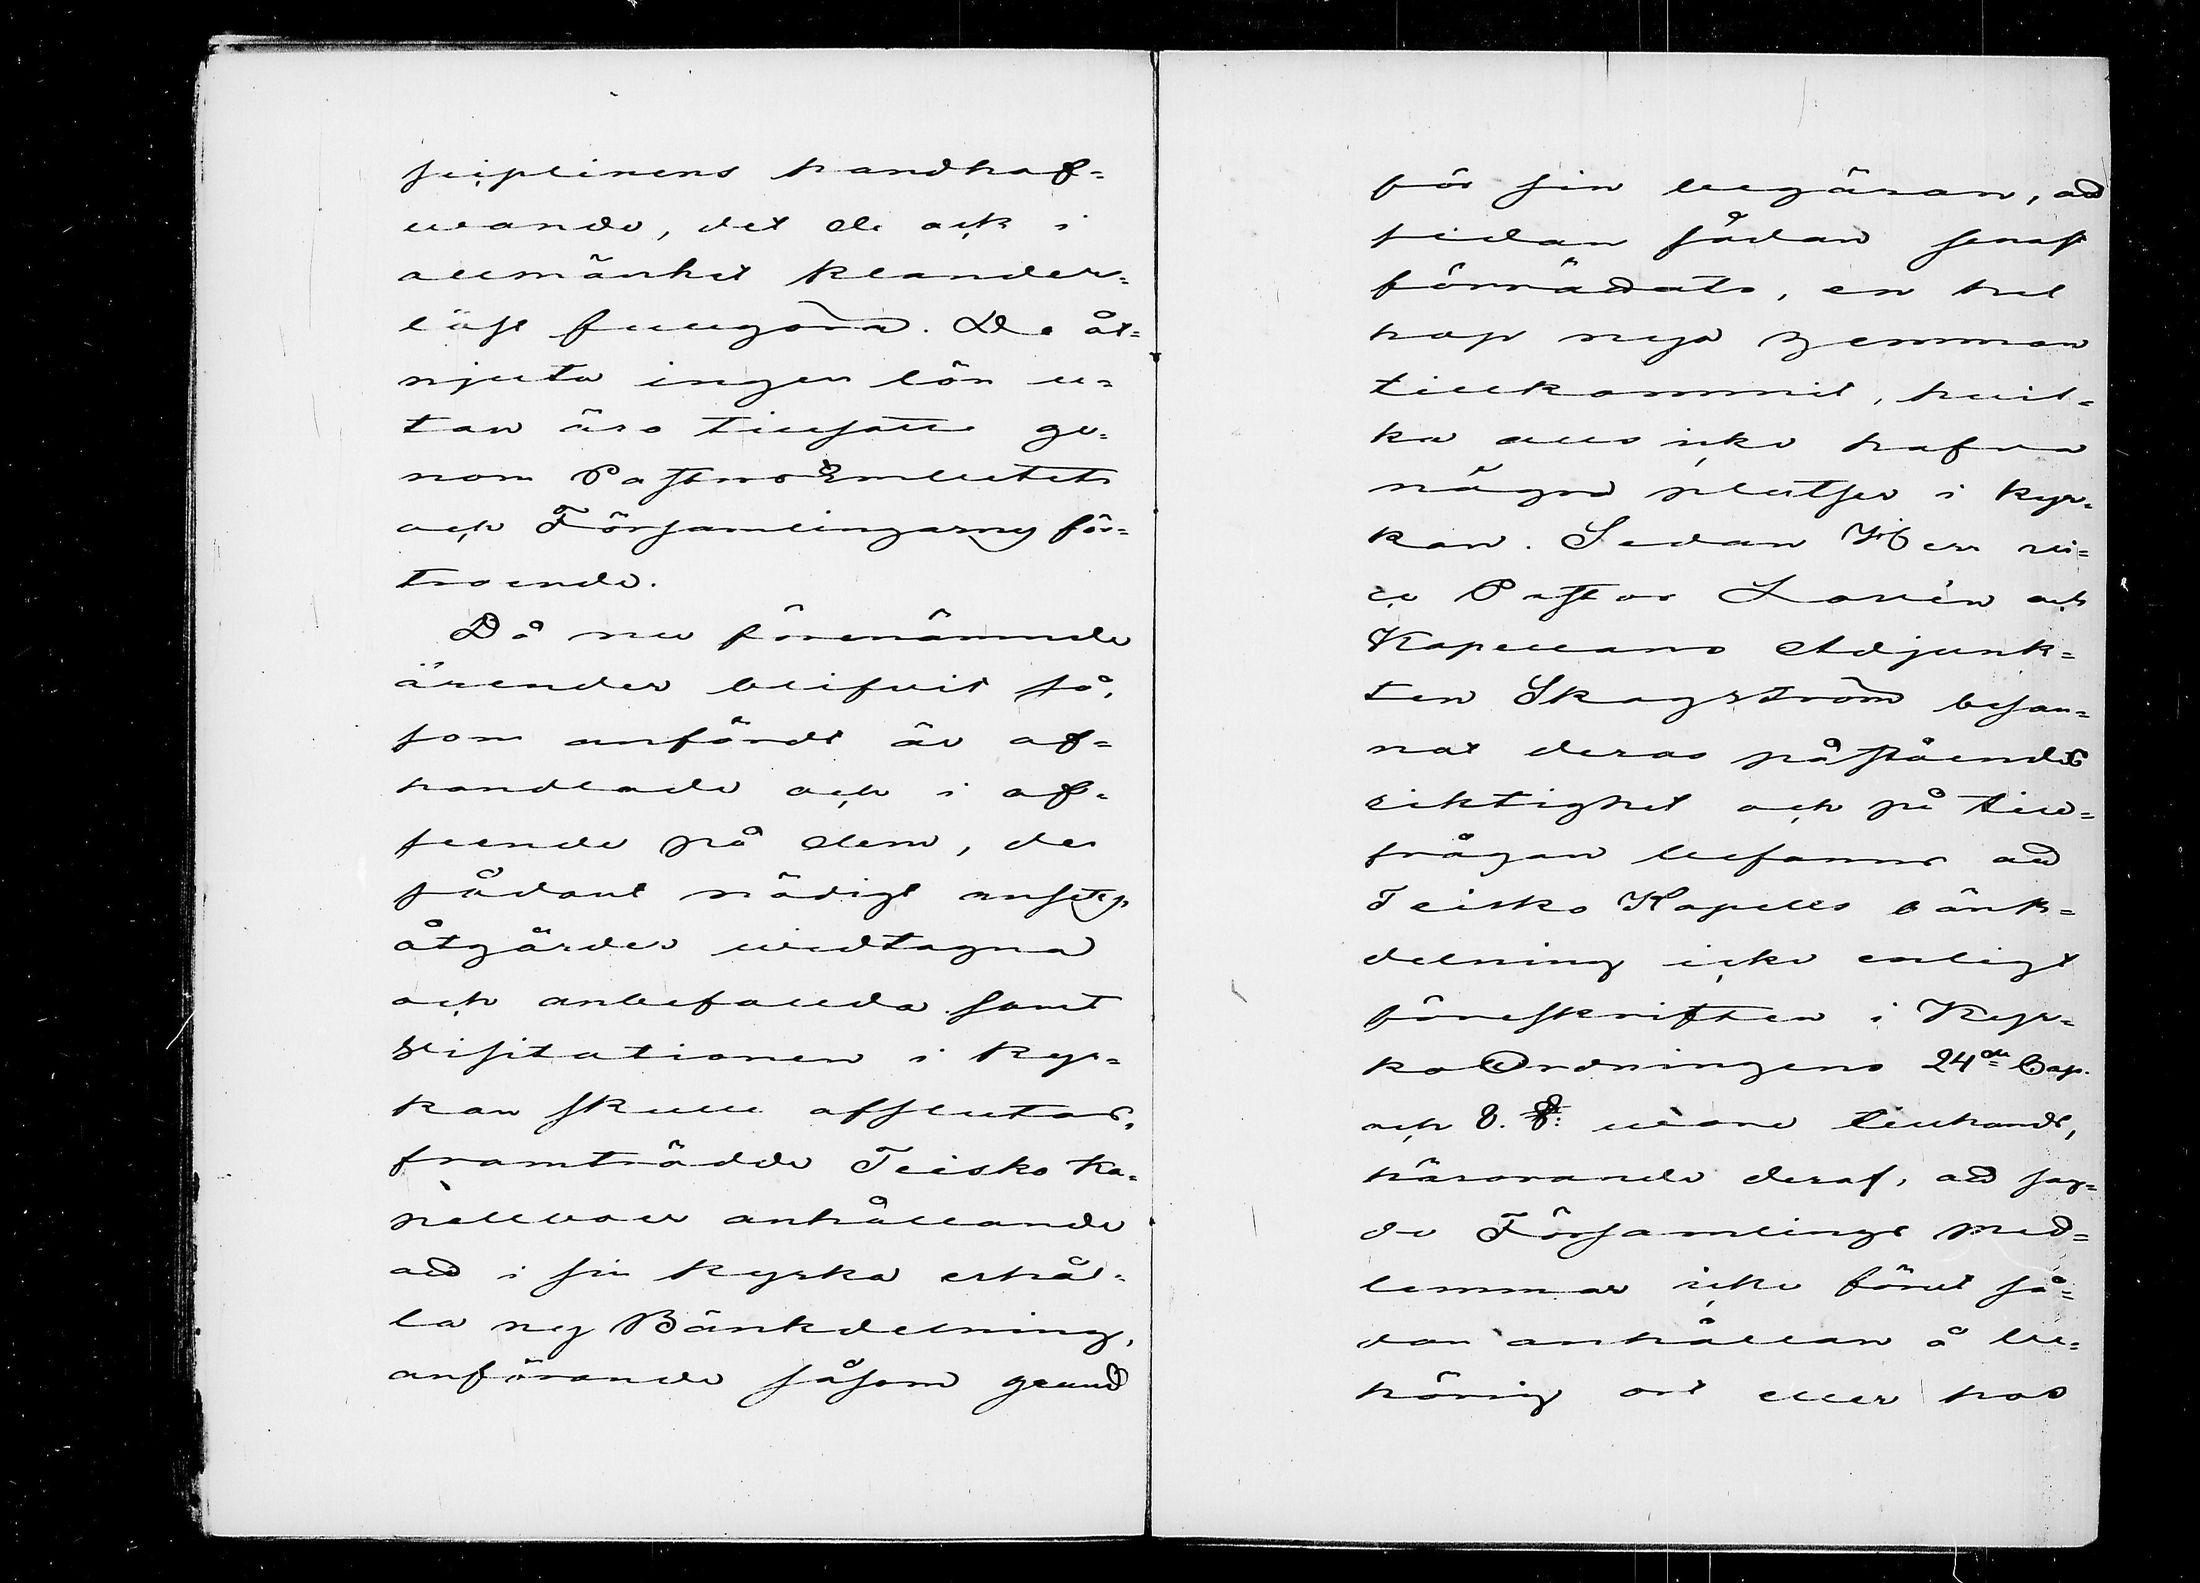 sciplinens handhaf=
vande, det de ock i
allmänhet klander=
löst fullgöra. De åt=
njuta ingen lön u=
tan äro tillsatte ge=
nom PastorsEmbetets
och Församlingarnes för=
troende.
Då nu förenämnde
ärender blifvit så,
som anfördt är af=
handlade och i af=
seende på dem, der
sådant nödigt ansetts
åtgärder vidtagna
och anbefallda samt
Visitationen i Kyr=
kan skulle afslutas,
framträdde Teisko Ka=
pellboer anhållande
att i sin kyrka erhål=
la ny Bänkdelning,
anförande såsom grund
för sin begäran, att
sedan sådan senast
förrättats, en hel
hop nya hemman
tillkommit, hvil=
ka alls icke hafva
några platser i kyr=
kan. Sedan Herr vi=
ce Pastor Lovén och
Kapellans Adjunk=
ten Skogström besan=
nat deras påståendes
riktighet och på till=
frågan befanns att
Teisko Kapells bänk=
delning icke enligt
föreskriften i Kyr=
koOrdningens 24de Cap.
och 8. §: vore tillhands,
härrörande deraf, att sag=
de Församlings med=
lemmar icke förut så=
dan anhållan å be=
hörig ort eller hos